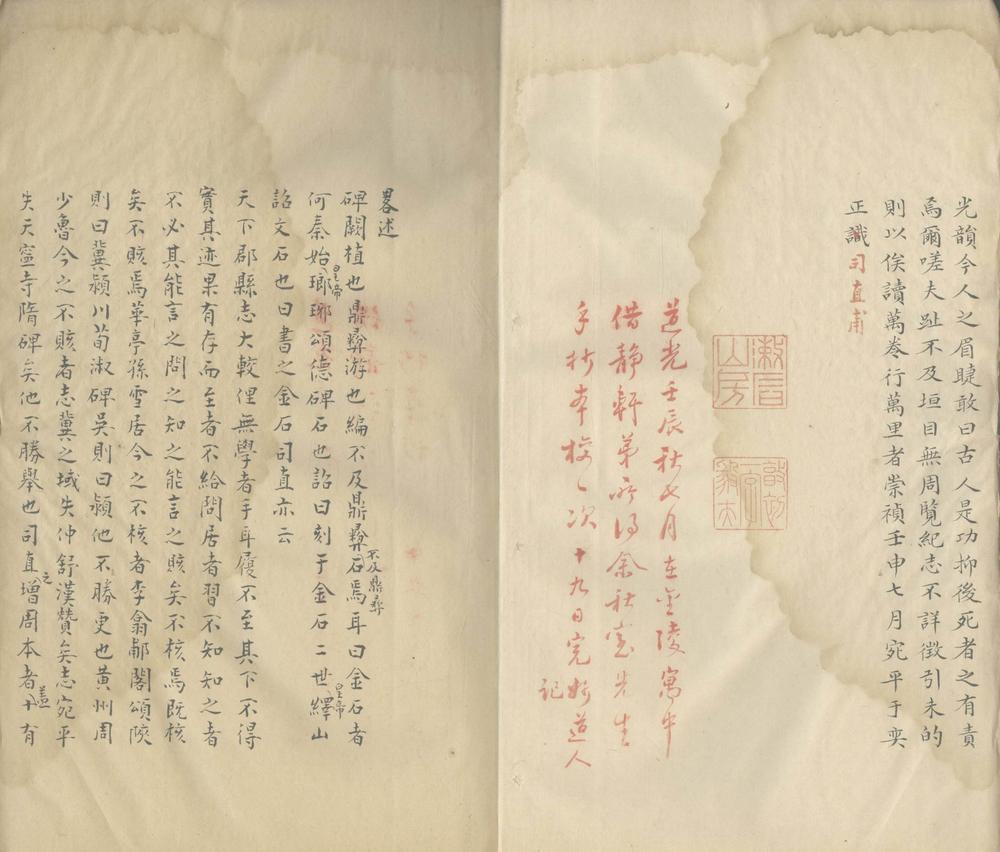 光韻今人之眉睫敢曰古人是功抑後死者之有責
焉爾嗟夫趾不及垣目無周覽紀志不詳徵引未的
則以俟讀萬卷行萬里者崇禎壬申七月宛平于奕
正識司直甫
道光壬辰秋七月在金陵寓中
借靜軒弟所得余秋室先生
手抄本校一次十九日完妙道人
記
漱石山房
畧述
碑闕植也鼎彝游也編不及鼎彝不及鼎彝石焉耳曰金石者
何秦始皇帝瑯琊頌德碑石也詔曰刻于金石二世皇帝繹山
詔文石也曰書之金石司直亦云
天下郡縣志大較俚無學者手耳履不至其下不得
實其迹果有存而至者不給問居者習不知知之者
不必其能言之問之知之能言之賅矣不核焉既核
矣不賅焉華亭孫雪居今之不核者李翕郙閣頌陝
則曰冀潁川荀淑碑吳則曰潁他不勝更也黃州周
少魯今之不賅者志冀之域失仲舒漢贊矣志宛平
失天寧寺隋碑矣他不勝舉也司直增之周本者蓋十有